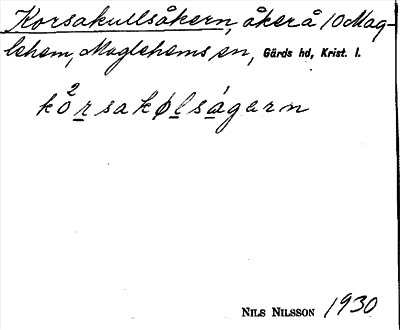 Korsakullsåkern, åker å 10 Mag-
lehem, Maglehems sn, Gärds hd, Krist. l.
kò²r̲sakøl̲sá̲garn
NILS NILSSON 1930